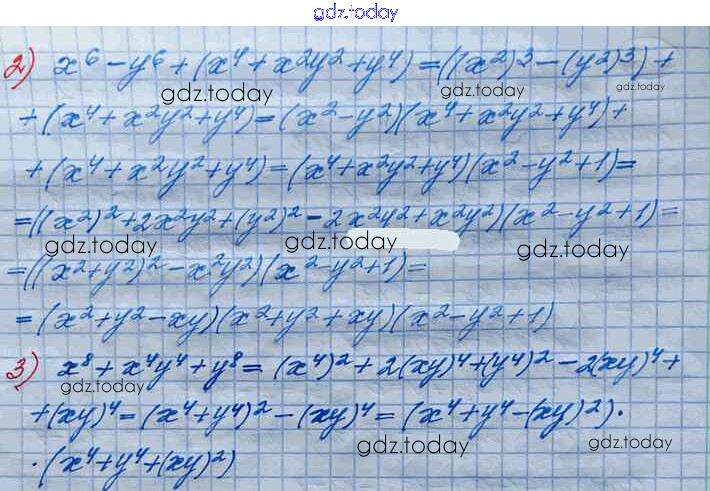 gdz.today
2) x⁶ - y⁶ + (x⁴ + x²y² + y⁴) = ((x²)³ - (y²)³) +
gdz.today gdz.today
+ (x⁴ + x²y² + y⁴) = (x² - y²)(x⁴ + x²y² + y⁴) +
+ (x⁴ + x²y² + y⁴) = (x⁴ + x²y² + y⁴)(x² - y² + 1) =
= ((x²)² + 2x²y² + (y²)² - 2x²y² + x²y²)(x² - y² + 1) =
gdz.today gdz.today gdz.today
= ((x² + y²)² - x²y²)(x² - y² + 1) =
= (x² + y² - xy)(x² + y² + xy)(x² - y² + 1)
3) x⁸ + x⁴y⁴ + y⁸ = (x⁴)² + 2(xy)⁴ + (y⁴)² - 2(xy)⁴ +
gdz.today
+ (xy)⁴ = (x⁴ + y⁴)² - (xy)⁴ = (x⁴ + y⁴ - (xy)²) ·
gdz.today gdz.today
· (x⁴ + y⁴ + (xy)²)